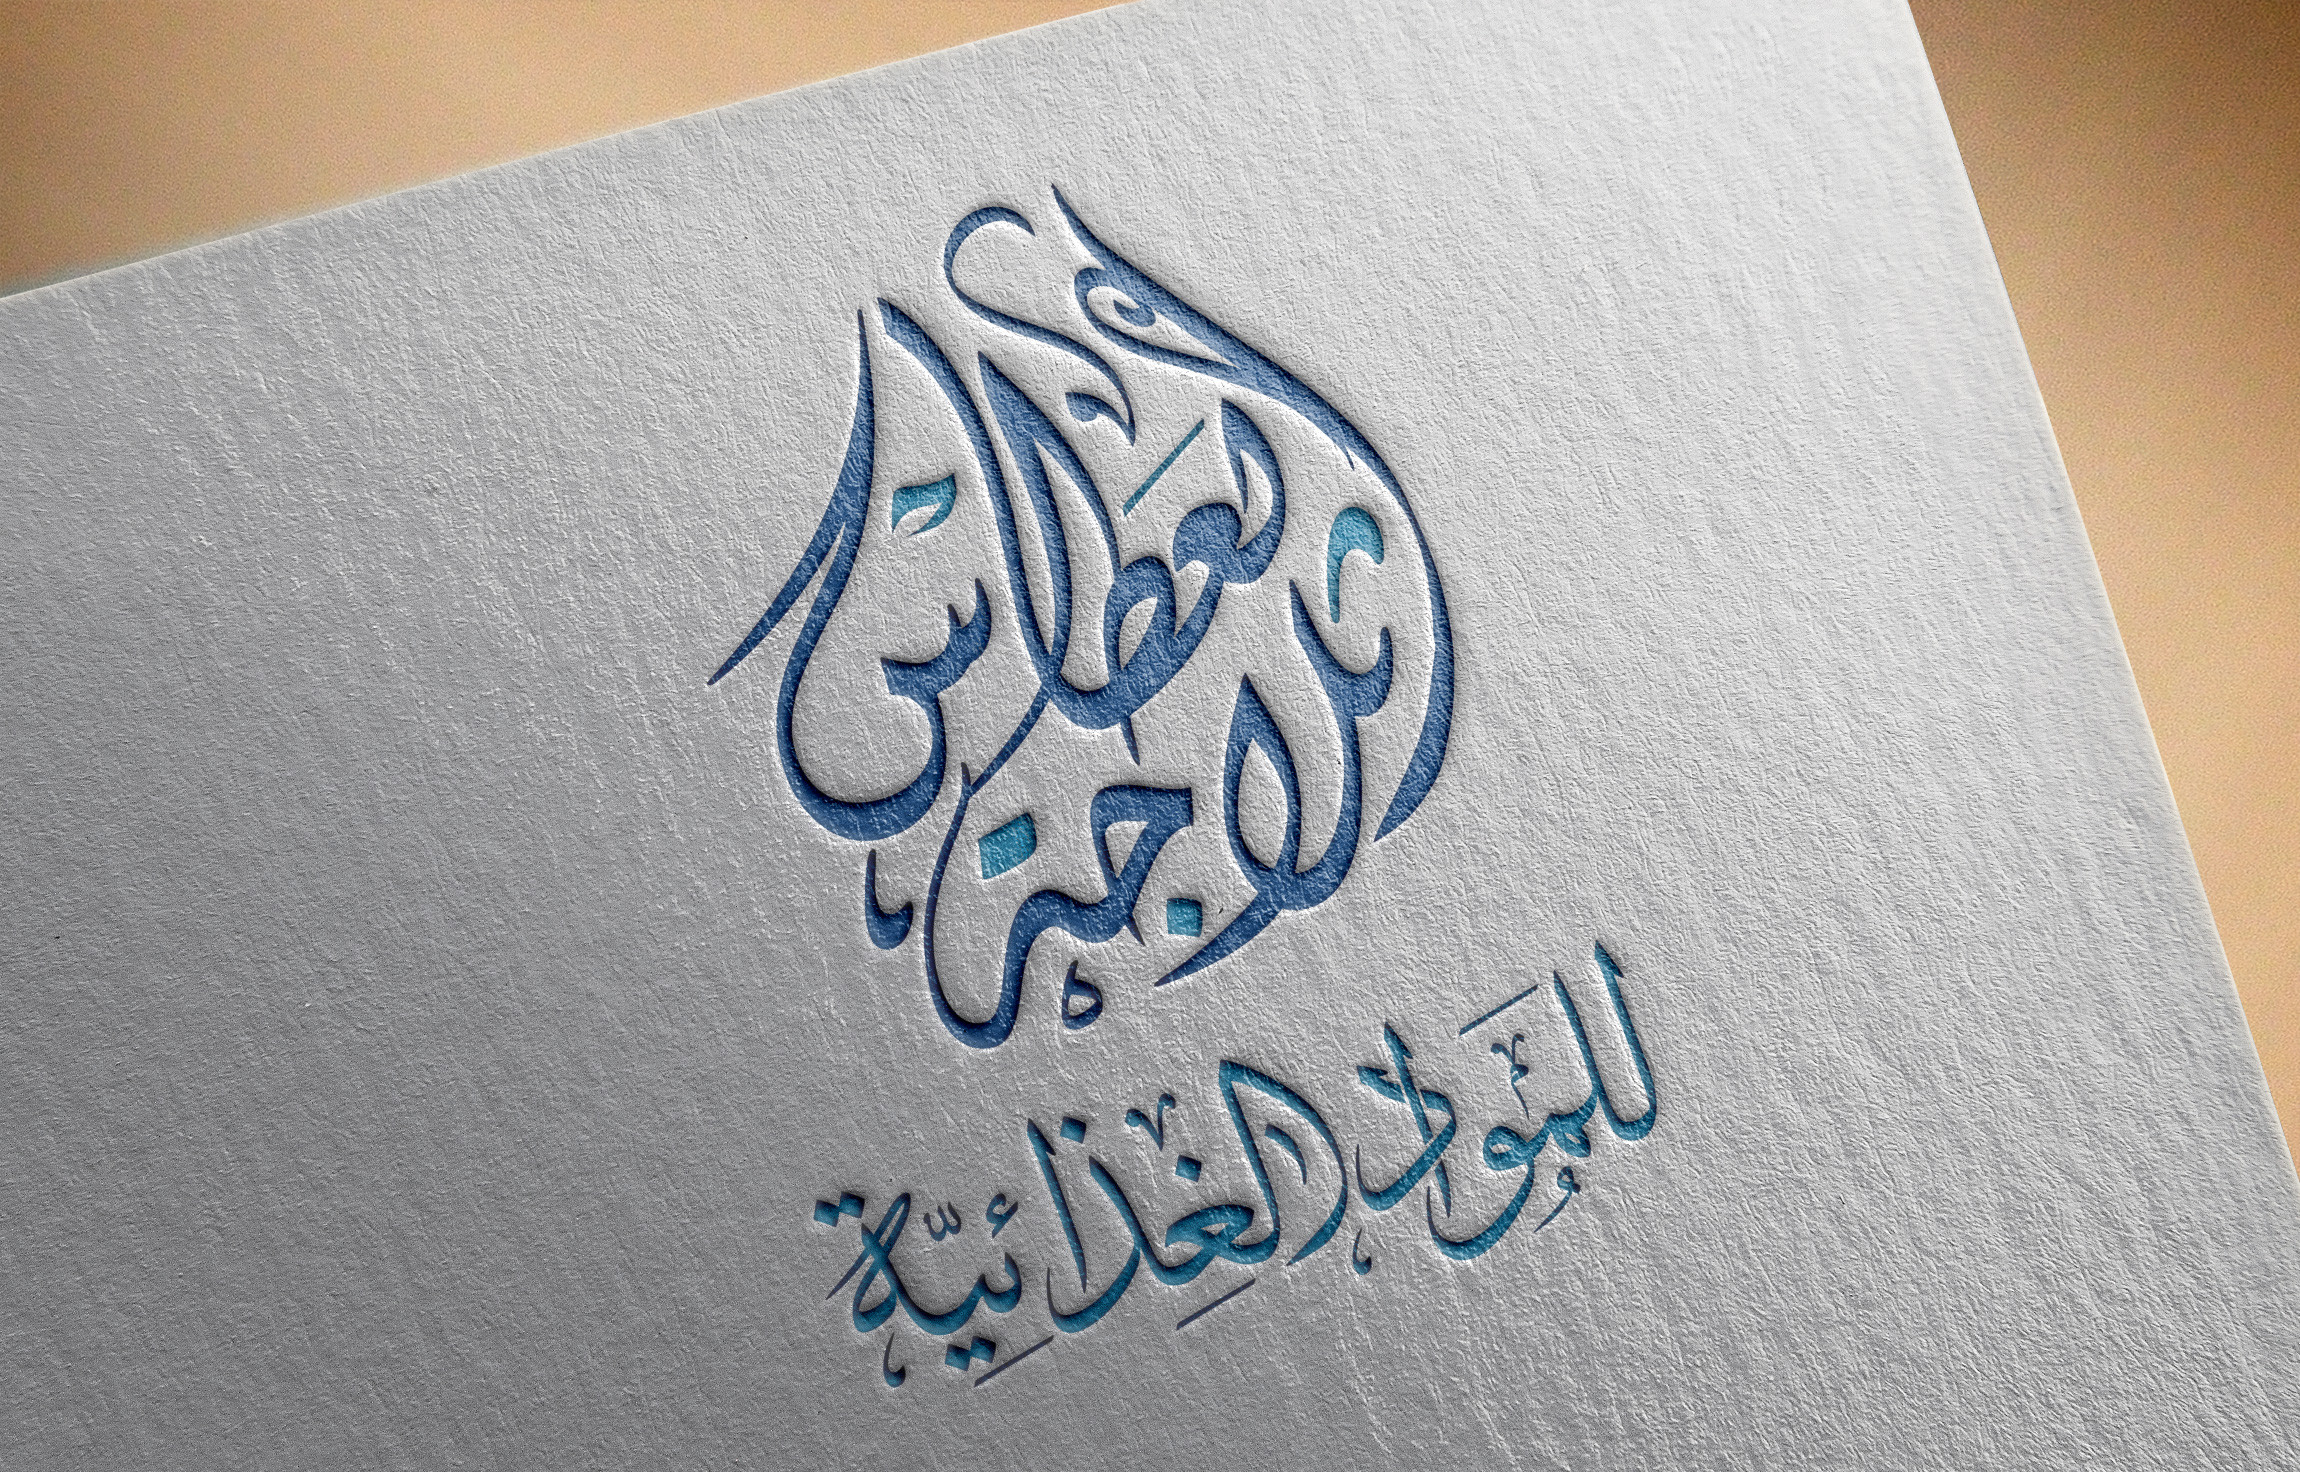 ثلاجة العطاس
للمَوَادِ الغِذَائِيَّة